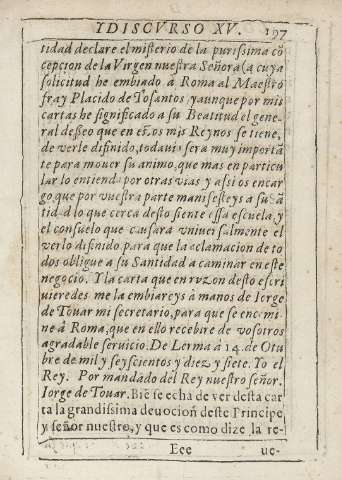 Y DISCVRSO XV. 197
tidad declare el misterio de la purissima cõ
cepcion de la Virgen nuestra Señora (a cuya
solicitud he embiado a Roma al Maestro
fray Placido de Tosantos, y aunque por mis
cartas he significado a su Beatitud el gene-
ral desseo que en estos mis Reynos se tiene,
de verle difinido, todauia sera muy importã
te para mouer su animo, que mas en particu
lar lo entienda por otras vias, y assi os encar
go, que por vuestra parte manifesteys a su Sã
tidad lo que cerca desto siente essa escuela, y
el consuelo que causarà vniuersalmente el
verlo difinido para que la aclamacion de to
dos obligue a su Santidad a caminar en este
negocio. Y la carta que en razon desto escri
uieredes me la embiareys à manos de Iorge
de Touar mi secretario, para que se encami-
ne à Roma, que en ello recebire de vosotros
agradable seruicio. De Lerma à 14. de Otu
bre de mil y seyscientos y diez y siete. Yo el
Rey. Por mandado del Rey nuestro señor.
Iorge de Touar. Biẽ se echa de ver desta car
ta la grandissima deuocion deste Principe,
y señor nuestro, y que es como dize la re-
Eee ue-